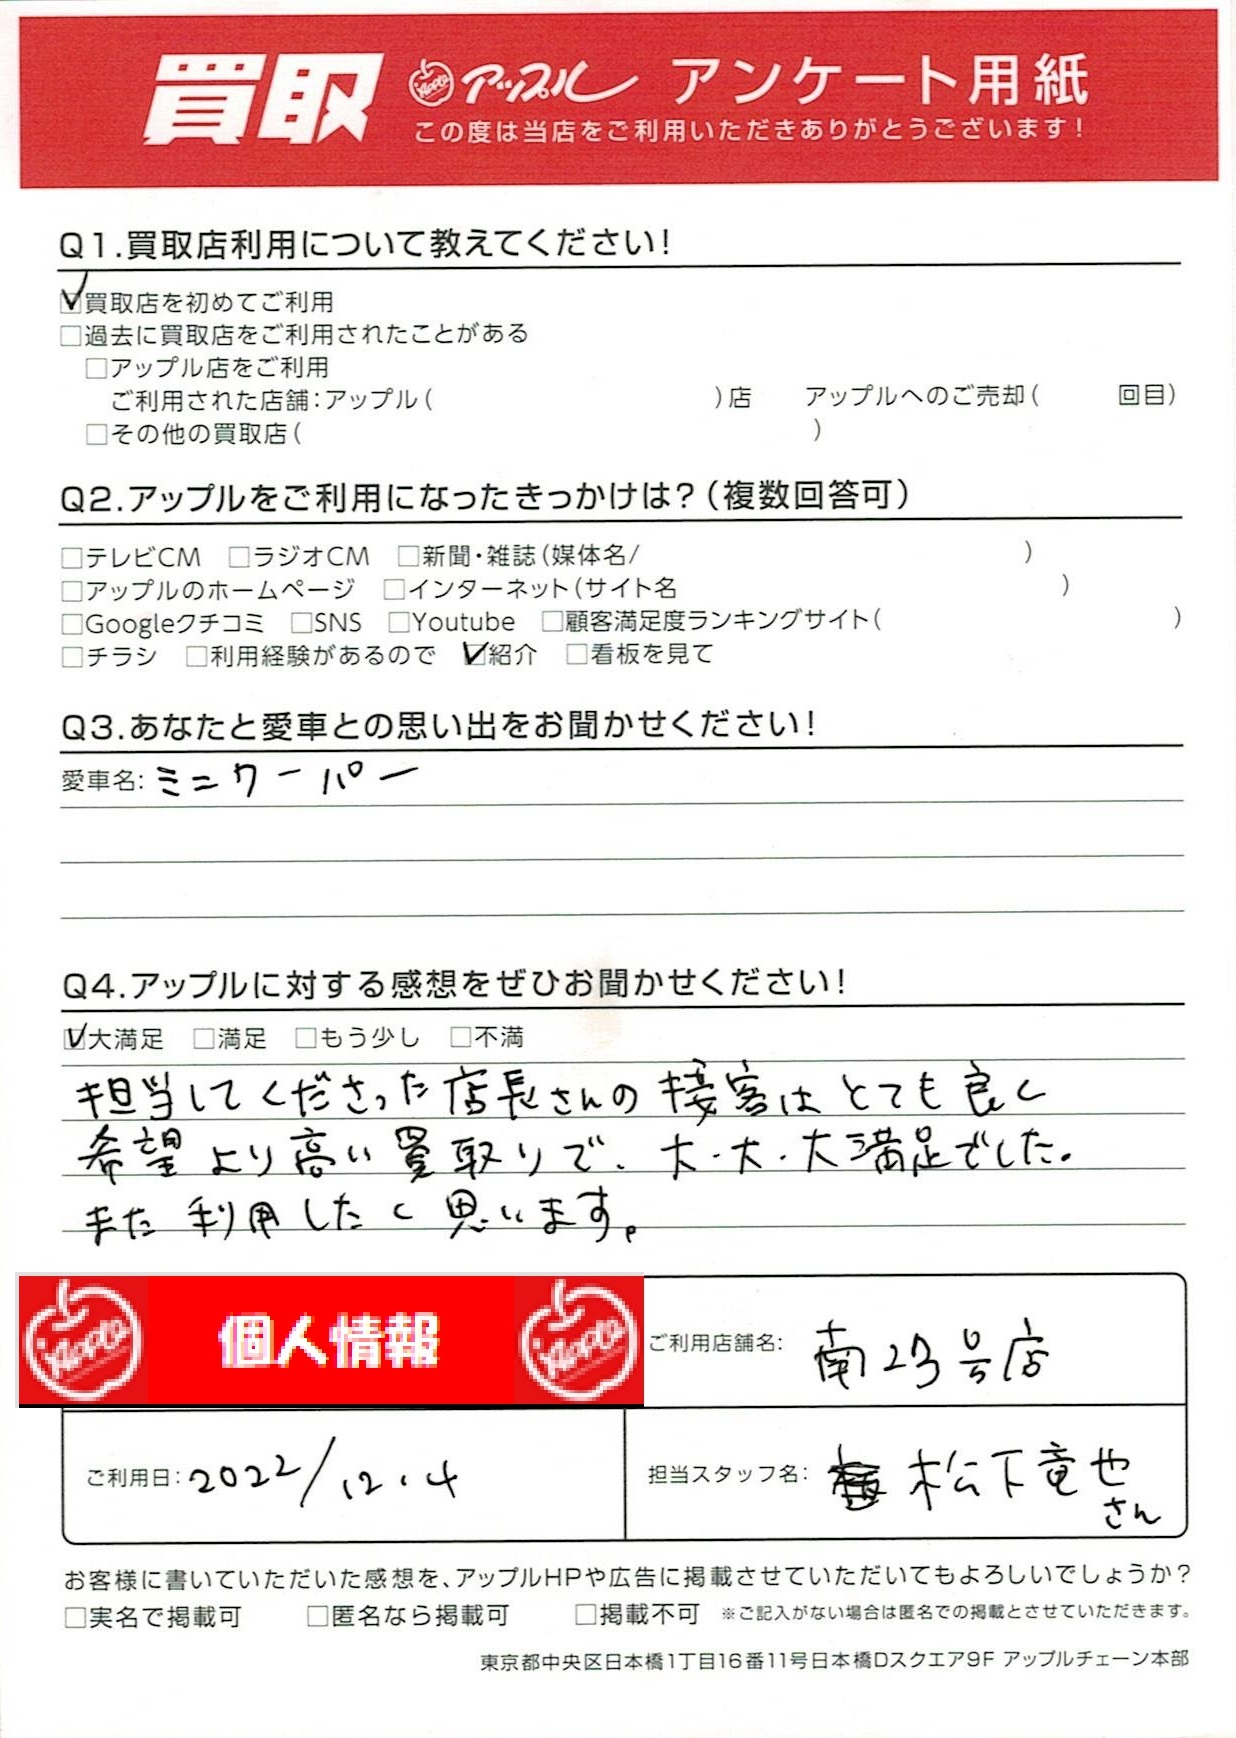 買取 Apple アップル アンケート用紙
この度は当店をご利用いただきありがとうございます!
Q1.買取店利用について教えてください!
☑買取店を初めてご利用
□過去に買取店をご利用されたことがある
□アップル店をご利用
ご利用された店舗:アップル( )店 アップルへのご売却( 回目)
□その他の買取店( )
Q2.アップルをご利用になったきっかけは?(複数回答可)
□テレビCM □ラジオCM □新聞・雑誌(媒体名/ )
□アップルのホームページ □インターネット(サイト名 )
□Googleクチコミ □SNS □Youtube □顧客満足度ランキングサイト( )
□チラシ □利用経験があるので ☑紹介 □看板を見て
Q3.あなたと愛車との思い出をお聞かせください!
愛車名: ミニクーパー
Q4.アップルに対する感想をぜひお聞かせください!
☑大満足 □満足 □もう少し □不満
担当してくださった店長さんの接客はとても良く
希望より高い買取りで、大・大・大満足でした。
また利用したく思います。
Apple 個人情報 Apple
ご利用店舗名: 南23号店
ご利用日: 2022/12.4
担当スタッフ名: 松下竜也
さん
お客様に書いていただいた感想を、アップルHPや広告に掲載させていただいてもよろしいでしょうか?
□実名で掲載可 □匿名なら掲載可 □掲載不可 ※ご記入がない場合は匿名での掲載とさせていただきます。
東京都中央区日本橋1丁目16番11号日本橋Dスクエア9F アップルチェーン本部